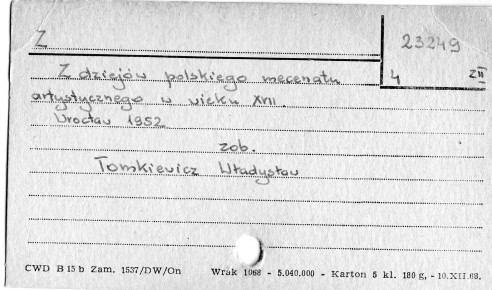 Z
23249
4 ZII
Z dziejów polskiego mecenatu
artystycznego w wieku XVII.
Wrocław 1952
zob.
Tomkiewicz Władysław
CWD B 15 b Zam. 1537/DW/On Wrak 1068 - 5.040.000 - Karton 5 kl. 180 g, - 10.XII.68.